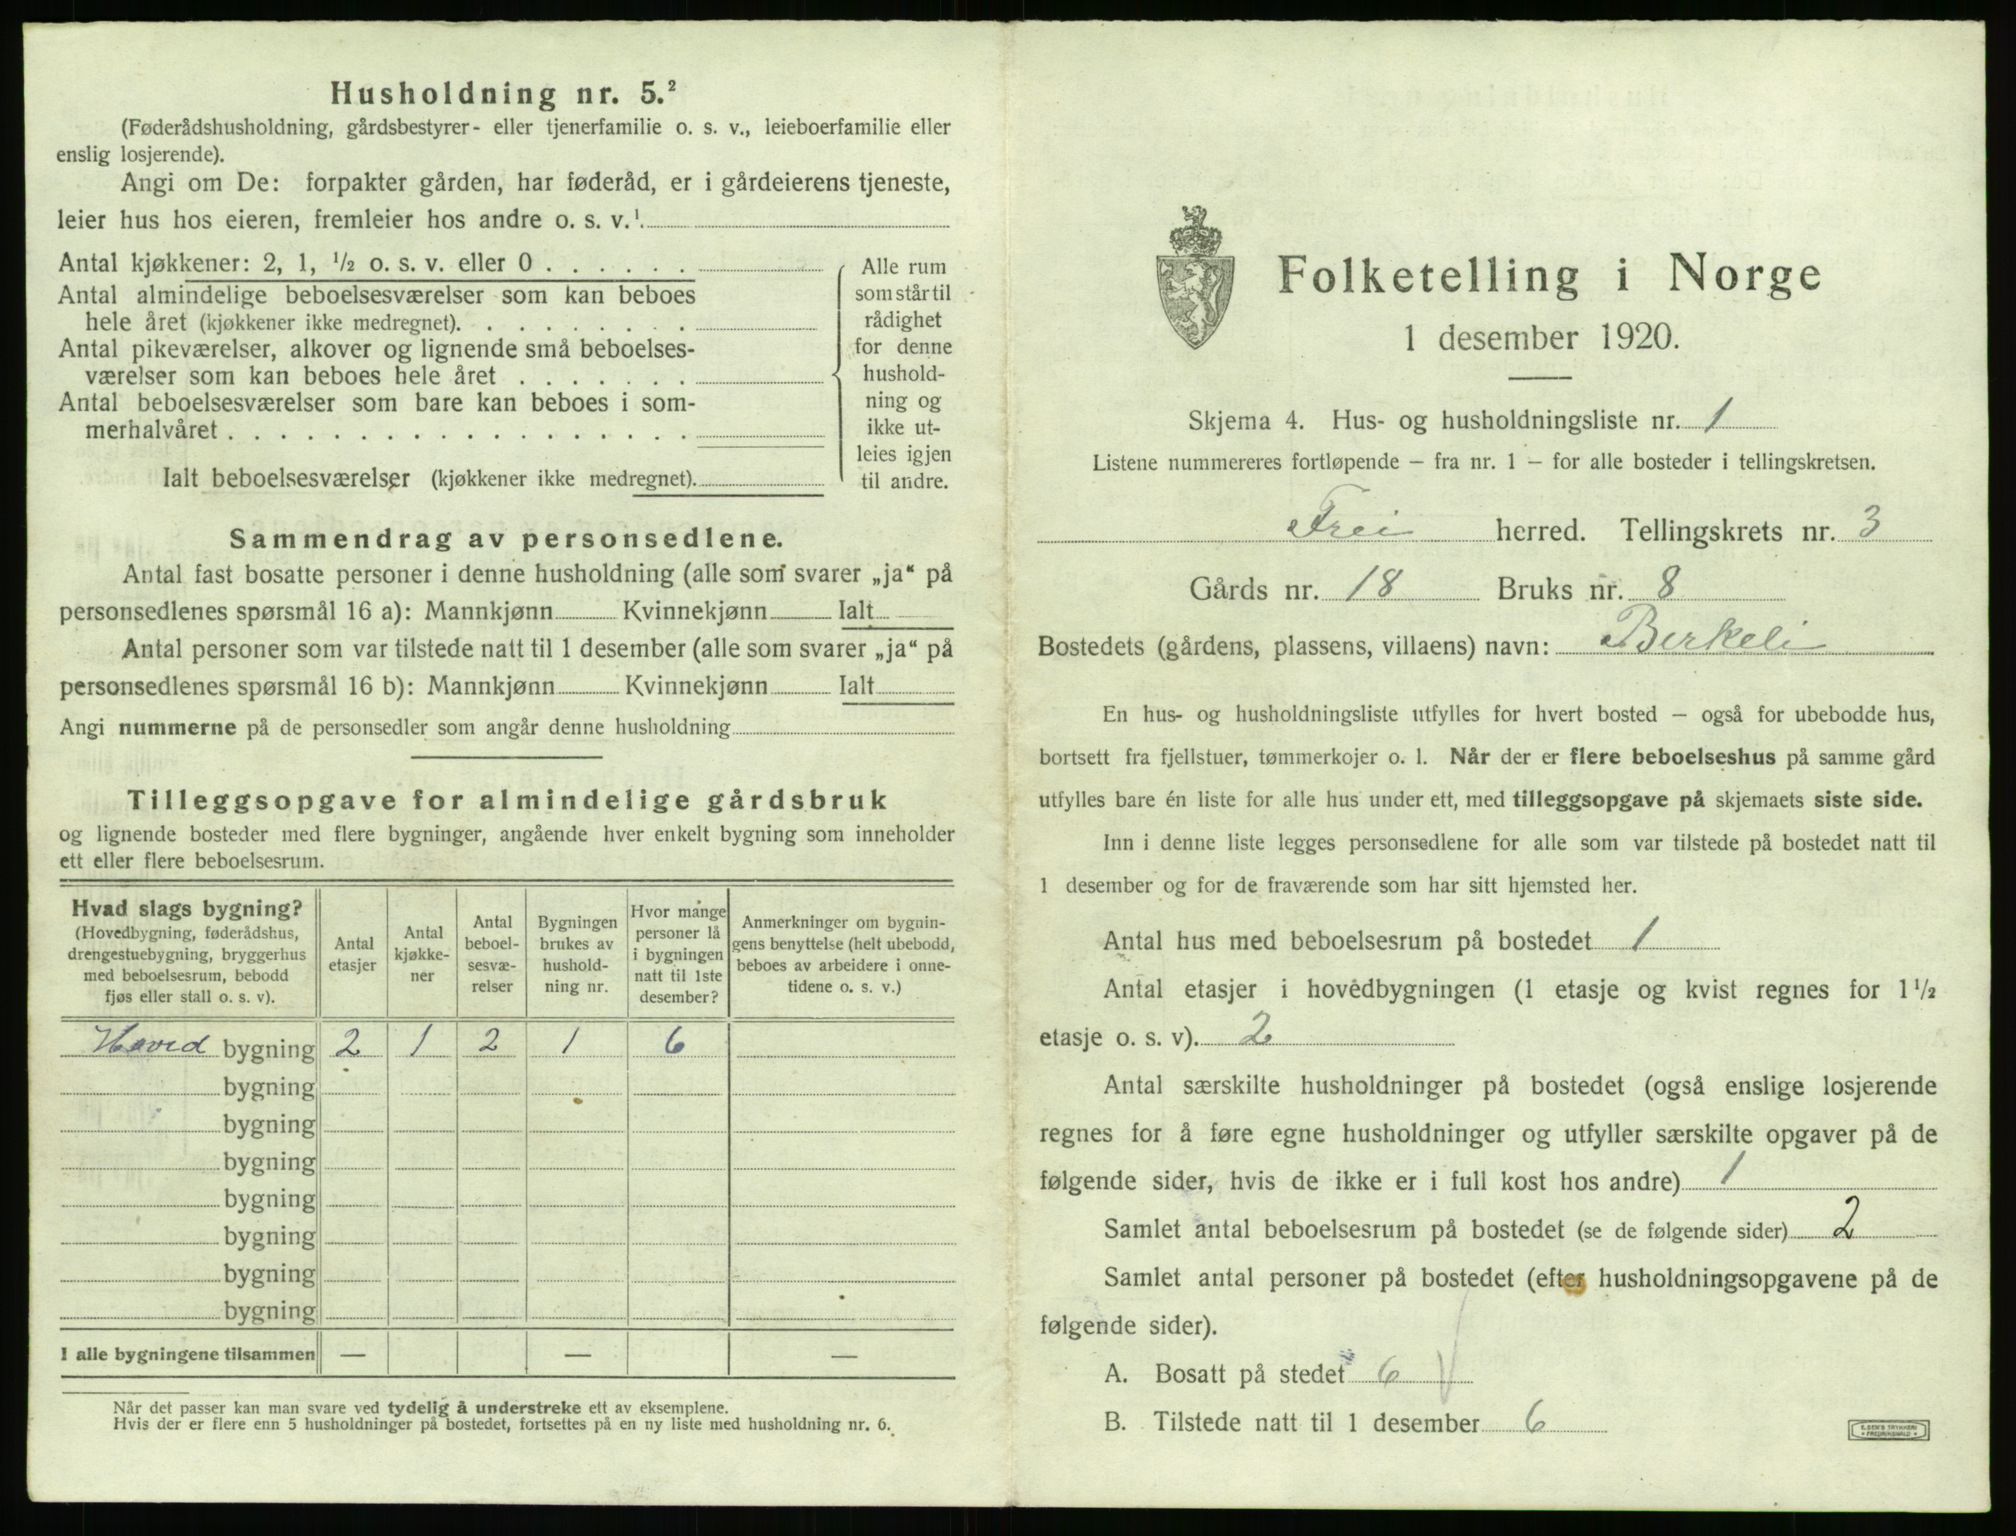 Husholdning nr. 5.²
(Føderådshusholdning, gårdsbestyrer- eller tjenerfamilie o. s. v., leieboerfamilie eller
enslig losjerende).
Angi om De: forpakter gården, har føderåd, er i gårdeierens tjeneste,
leier hus hos eieren, fremleier hos andre o. s. v.¹
Antal kjøkkener: 2, 1, ½ o. s. v. eller 0 . . . . . .
Antal almindelige beboelsesværelser som kan beboes
hele året (kjøkkener ikke medregnet). . . . . . . . .
Antal pikeværelser, alkover og lignende små beboelses-
værelser som kan beboes hele året . . . . . . .
Antal beboelsesværelser som bare kan beboes i som-
merhalvåret . . . . . . . . . . . . . . . . . .
Ialt beboelsesværelser (kjøkkener ikke medregnet).
Alle rum
som står til
rådighet
for denne
hushold-
ning og
ikke ut-
leies igjen
til andre.
Sammendrag av personsedlene.
Antal fast bosatte personer i denne husholdning (alle som svarer „ja“ på
personsedlenes spørsmål 16 a): Mannkjønn Kvinnekjønn Ialt
Antal personer som var tilstede natt til 1 desember (alle som svarer „ja“ på
personsedlenes spørsmål 16 b): Mannkjønn Kvinnekjønn Ialt
Angi nummerne på de personsedler som angår denne husholdning
Tilleggsopgave for almindelige gårdsbruk
og lignende bosteder med flere bygninger, angående hver enkelt bygning som inneholder
ett eller flere beboelsesrum.
Hvad slags bygning?
(Hovedbygning, føderådshus,
drengestuebygning, bryggerhus
med beboelsesrum, bebodd
fjøs eller stall o. s. v).
Antal
etasjer
Antal
kjøkke-
ner
Antal
beboel-
sesvæ-
relser
Bygningen
brukes av
hushold-
ning nr.
Hvor mange
personer lå
i bygningen
natt til 1ste
desember?
Anmerkninger om bygnin-
gens benyttelse (helt ubebodd,
beboes av arbeidere i onne-
tidene o. s. v.)
Hoved bygning 2 1 2 1 6
bygning
bygning
bygning
bygning
bygning
bygning
bygning
I alle bygningene tilsammen — — —
Når det passer kan man svare ved tydelig å understreke ett av eksemplene.
Hvis der er flere enn 5 husholdninger på bostedet, fortsettes på en ny liste med husholdning nr. 6.
Folketelling i Norge
1 desember 1920.
Skjema 4. Hus- og husholdningsliste nr. 1
Listene nummereres fortløpende — fra nr. 1 — for alle bosteder i tellingskretsen.
Frei herred. Tellingskrets nr. 3
Gårds nr. 18 Bruks nr. 8
Bostedets (gårdens, plassens, villaens) navn: Berkeli
En hus- og husholdningsliste utfylles for hvert bosted — også for ubebodde hus,
bortsett fra fjellstuer, tømmerkojer o. l. Når der er flere beboelseshus på samme gård
utfylles bare én liste for alle hus under ett, med tilleggsopgave på skjemaets siste side.
Inn i denne liste legges personsedlene for alle som var tilstede på bostedet natt til
1 desember og for de fraværende som har sitt hjemsted her.
Antal hus med beboelsesrum på bostedet 1
Antal etasjer i hovedbygningen (1 etasje og kvist regnes for 1½
etasje o. s. v). 2
Antal særskilte husholdninger på bostedet (også enslige losjerende
regnes for å føre egne husholdninger og utfyller særskilte opgaver på de
følgende sider, hvis de ikke er i full kost hos andre) 1
Samlet antal beboelsesrum på bostedet (se de følgende sider) 2
Samlet antal personer på bostedet (efter husholdningsopgavene på de
følgende sider).
A. Bosatt på stedet 6
B. Tilstede natt til 1 desember 6